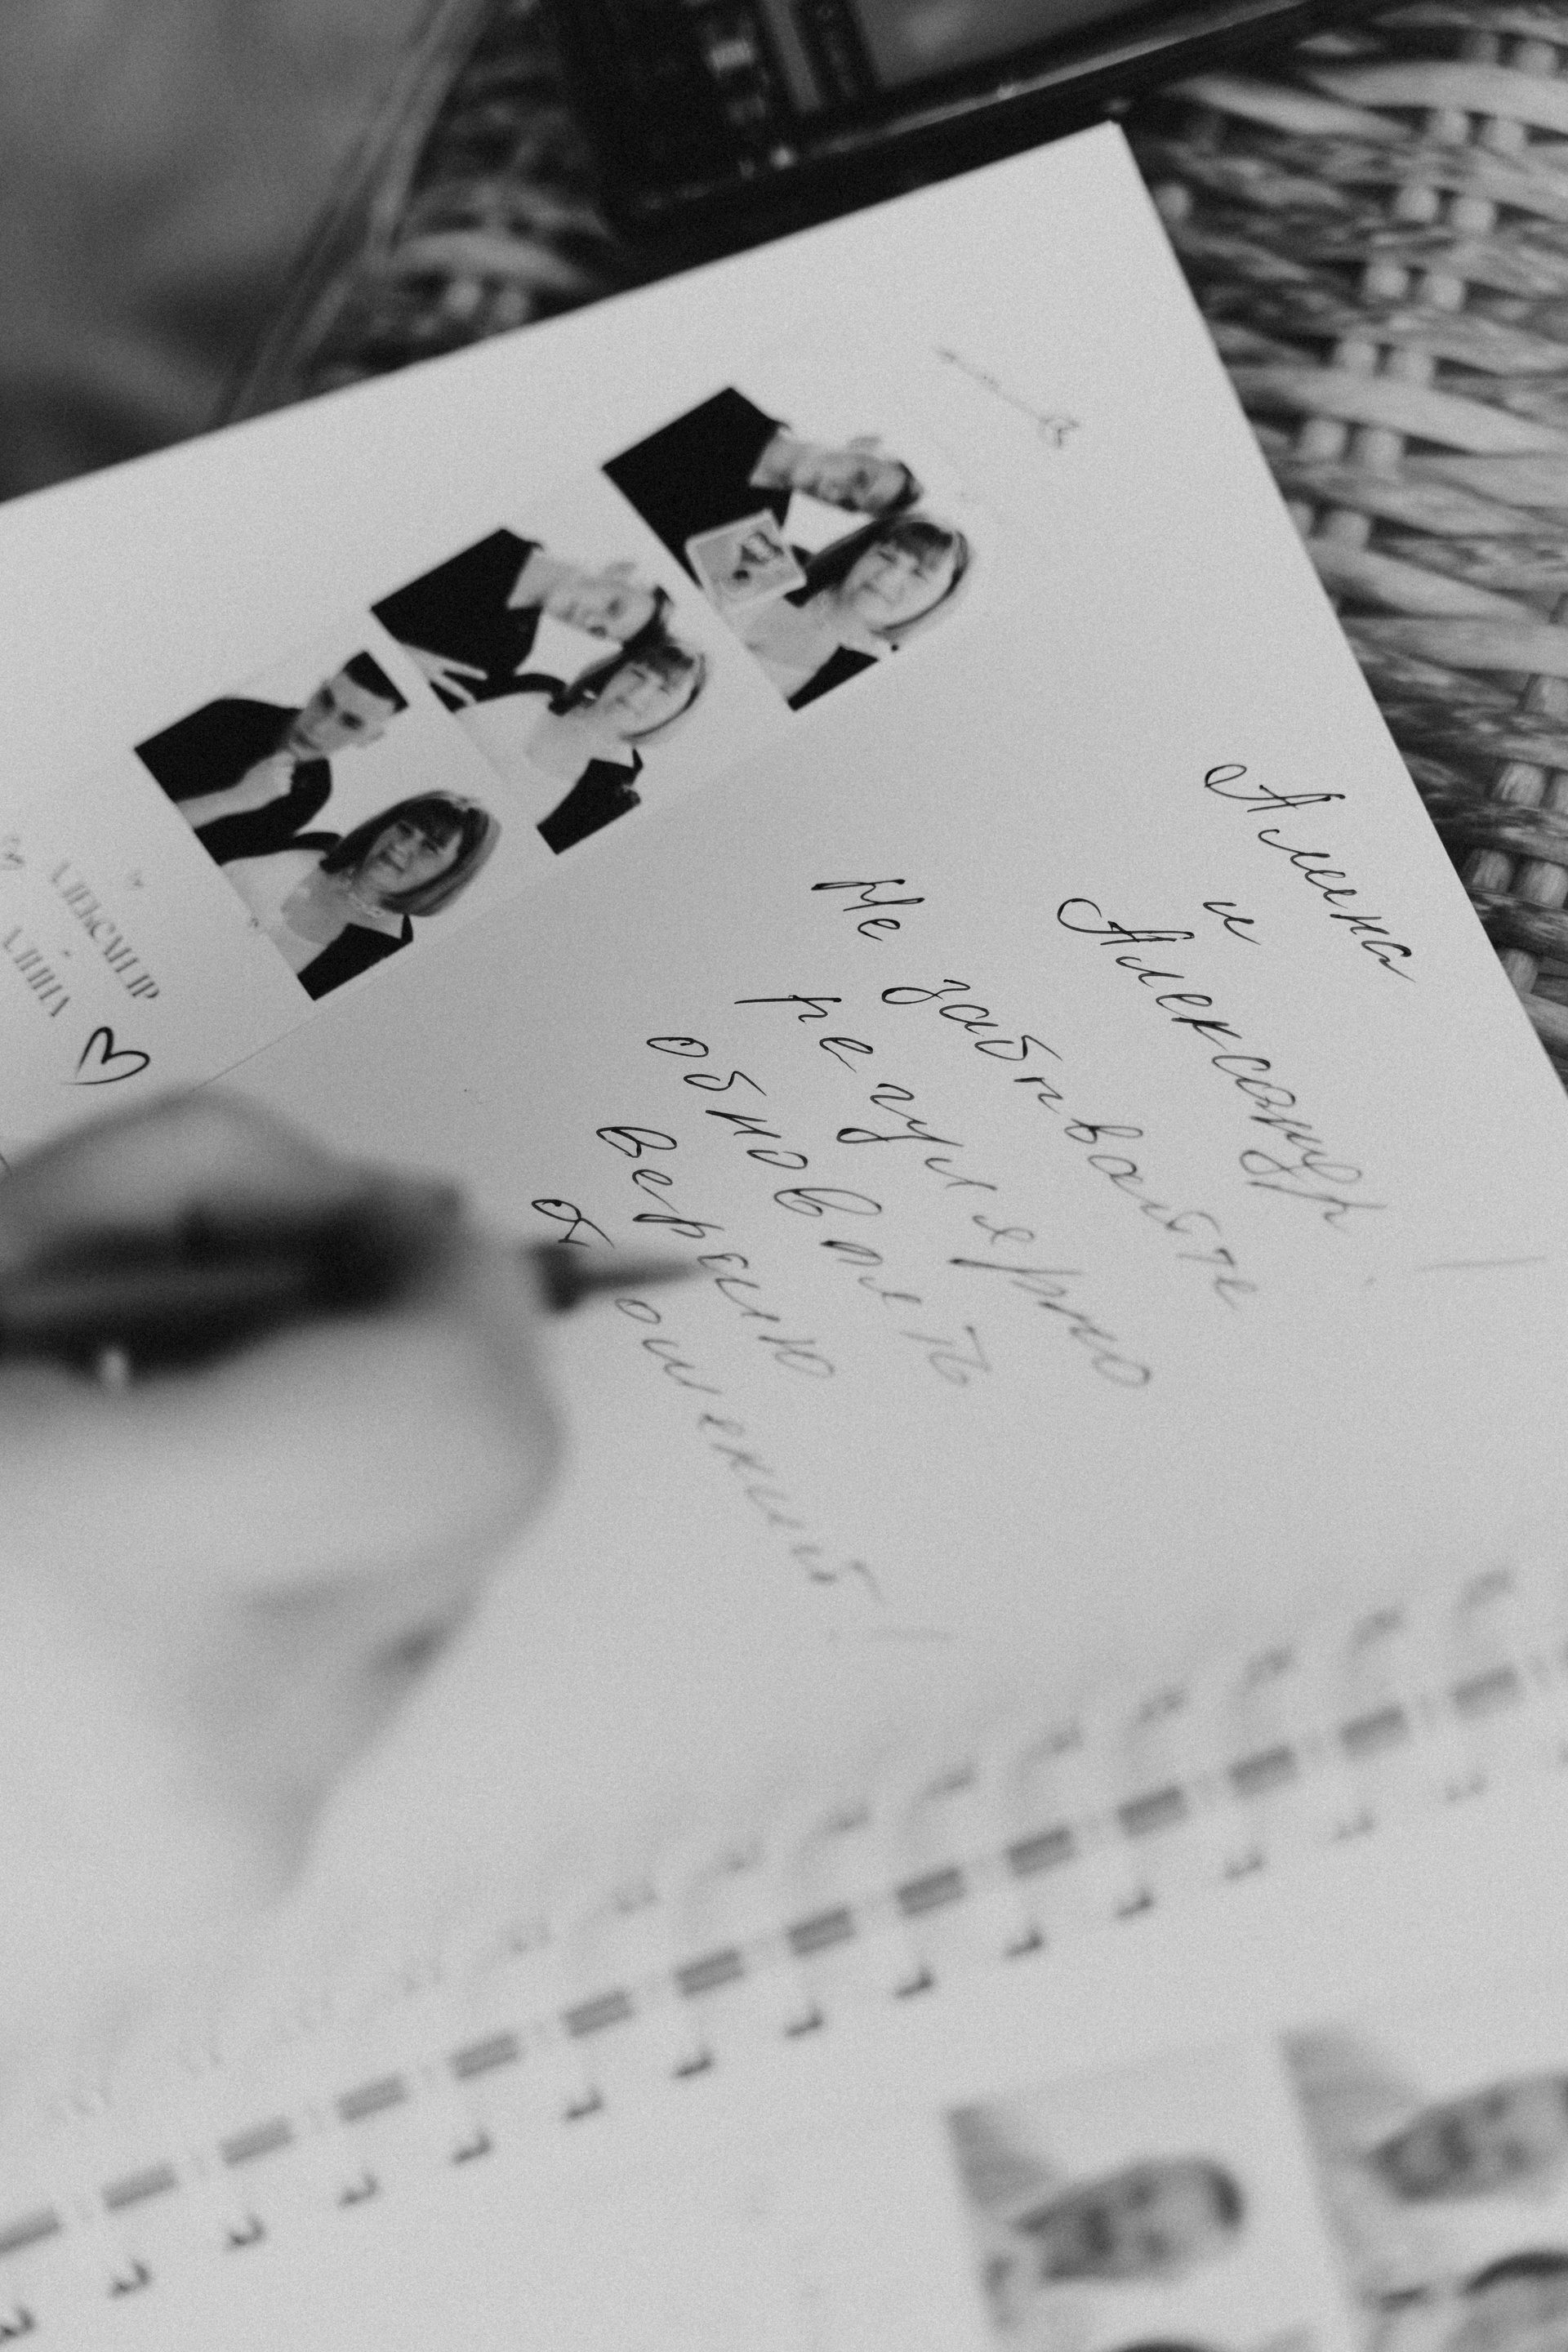 Алина
и
Александр
Не забывайте
регулярно
обновлять
версию
отношений!
АЛЕКСАНДР
АЛИНА